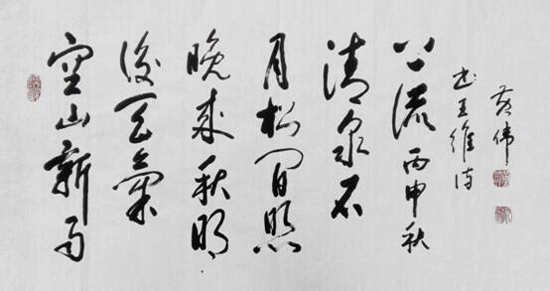 空山新雨
後天氣
晚来秋明
月松间照
清泉石
上流丙申秋
书王维诗
伟